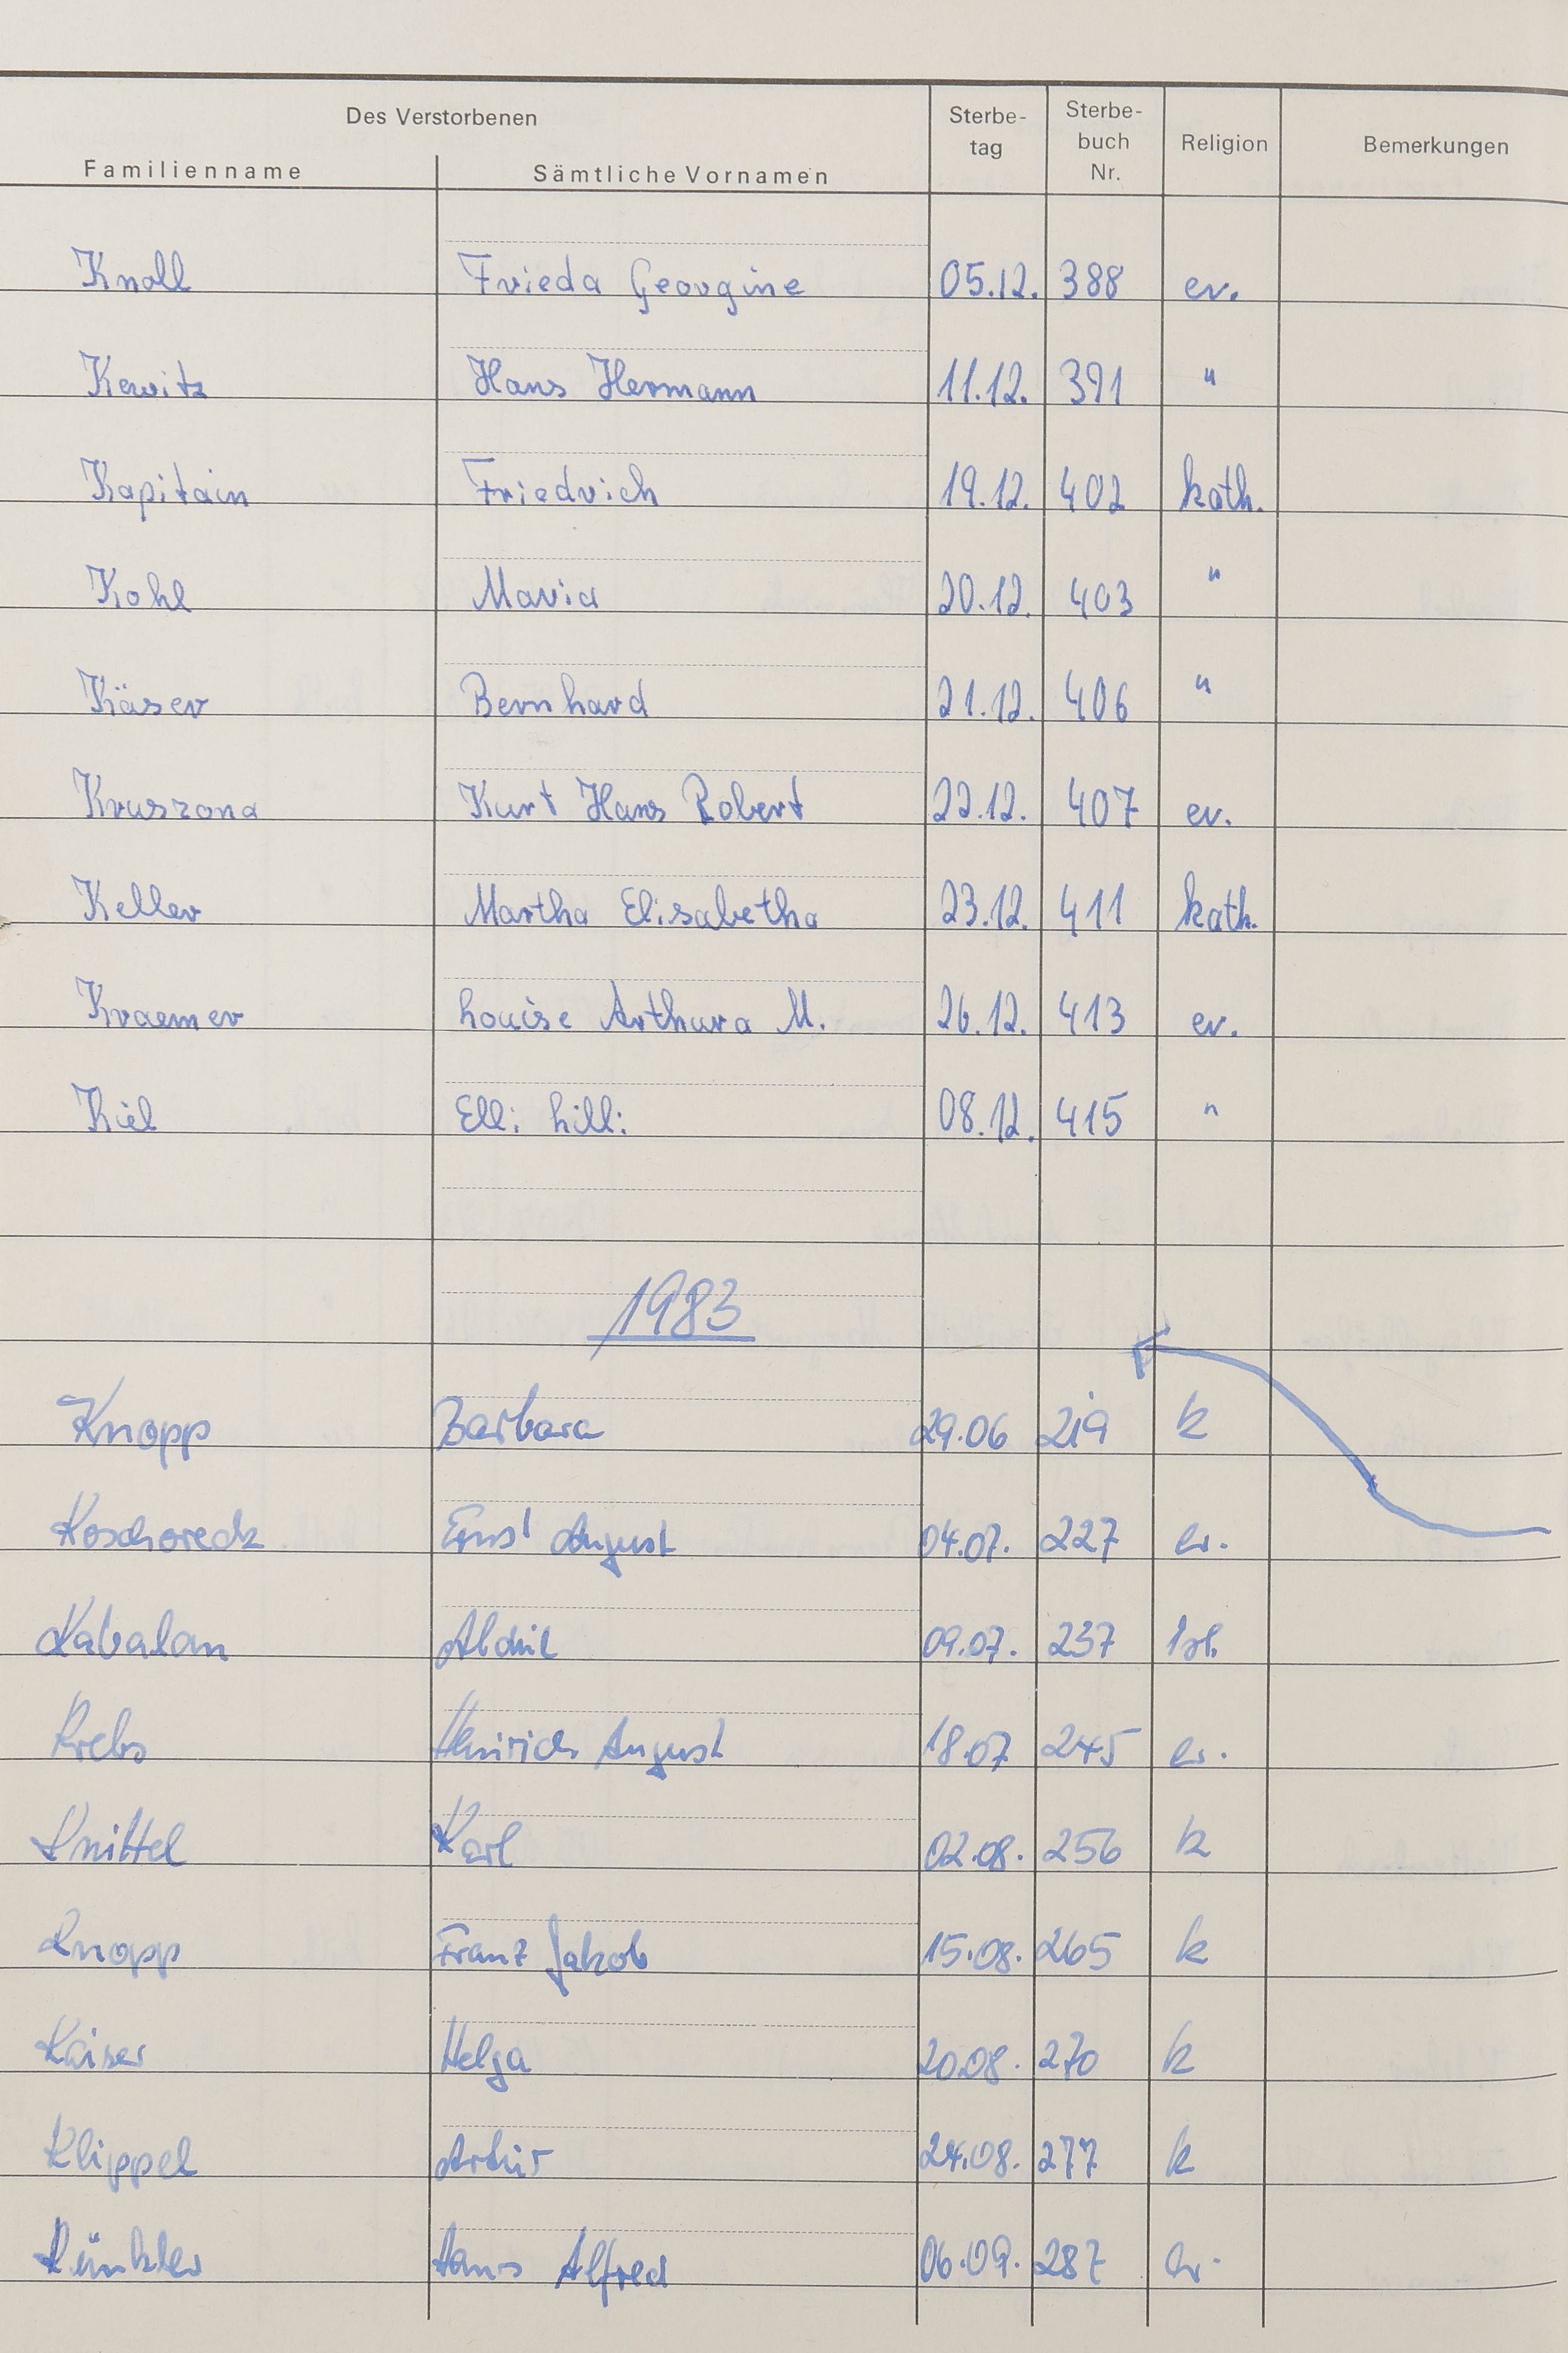 Des Verstorbenen
Familienname Sämtliche Vornamen Sterbe-tag Sterbe-buch Nr. Religion Bemerkungen
Knoll Frieda Georgine 05.12. 388 ev.
Kewitz Hans Hermann 11.12. 391 "
Kapitain Friedrich 19.12. 402 kath.
Kohl Maria 20.12. 403 "
Käser Bernhard 21.12. 406 "
Kruszona Kurt Hans Robert 22.12. 407 ev.
Keller Martha Elisabetha 23.12. 411 kath.
Kraemer Louise Arthura M. 26.12. 413 ev.
Kiel Elli Lilli 08.12. 415 "
1983
Knopp Barbara 29.06 219 k
Koschoreck Ernst August 04.07. 227 ev.
Kabalan 09.07. 237 Isl.
Krebs Heinrich August 18.07 245 ev.
Knittel Karl 02.08. 256 k
Knopp Franz Jakob 15.08. 265 k
Kaiser Helga 20.08. 270 k
Klippel Artur 24.08. 277 k
Künkler Hans Alfred 06.09. 287 ev.